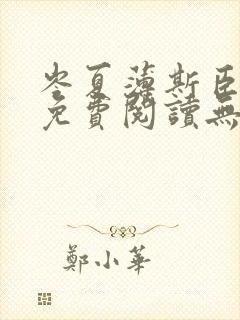 岑夏薄斯臣
免費閱讀無
鄭小華